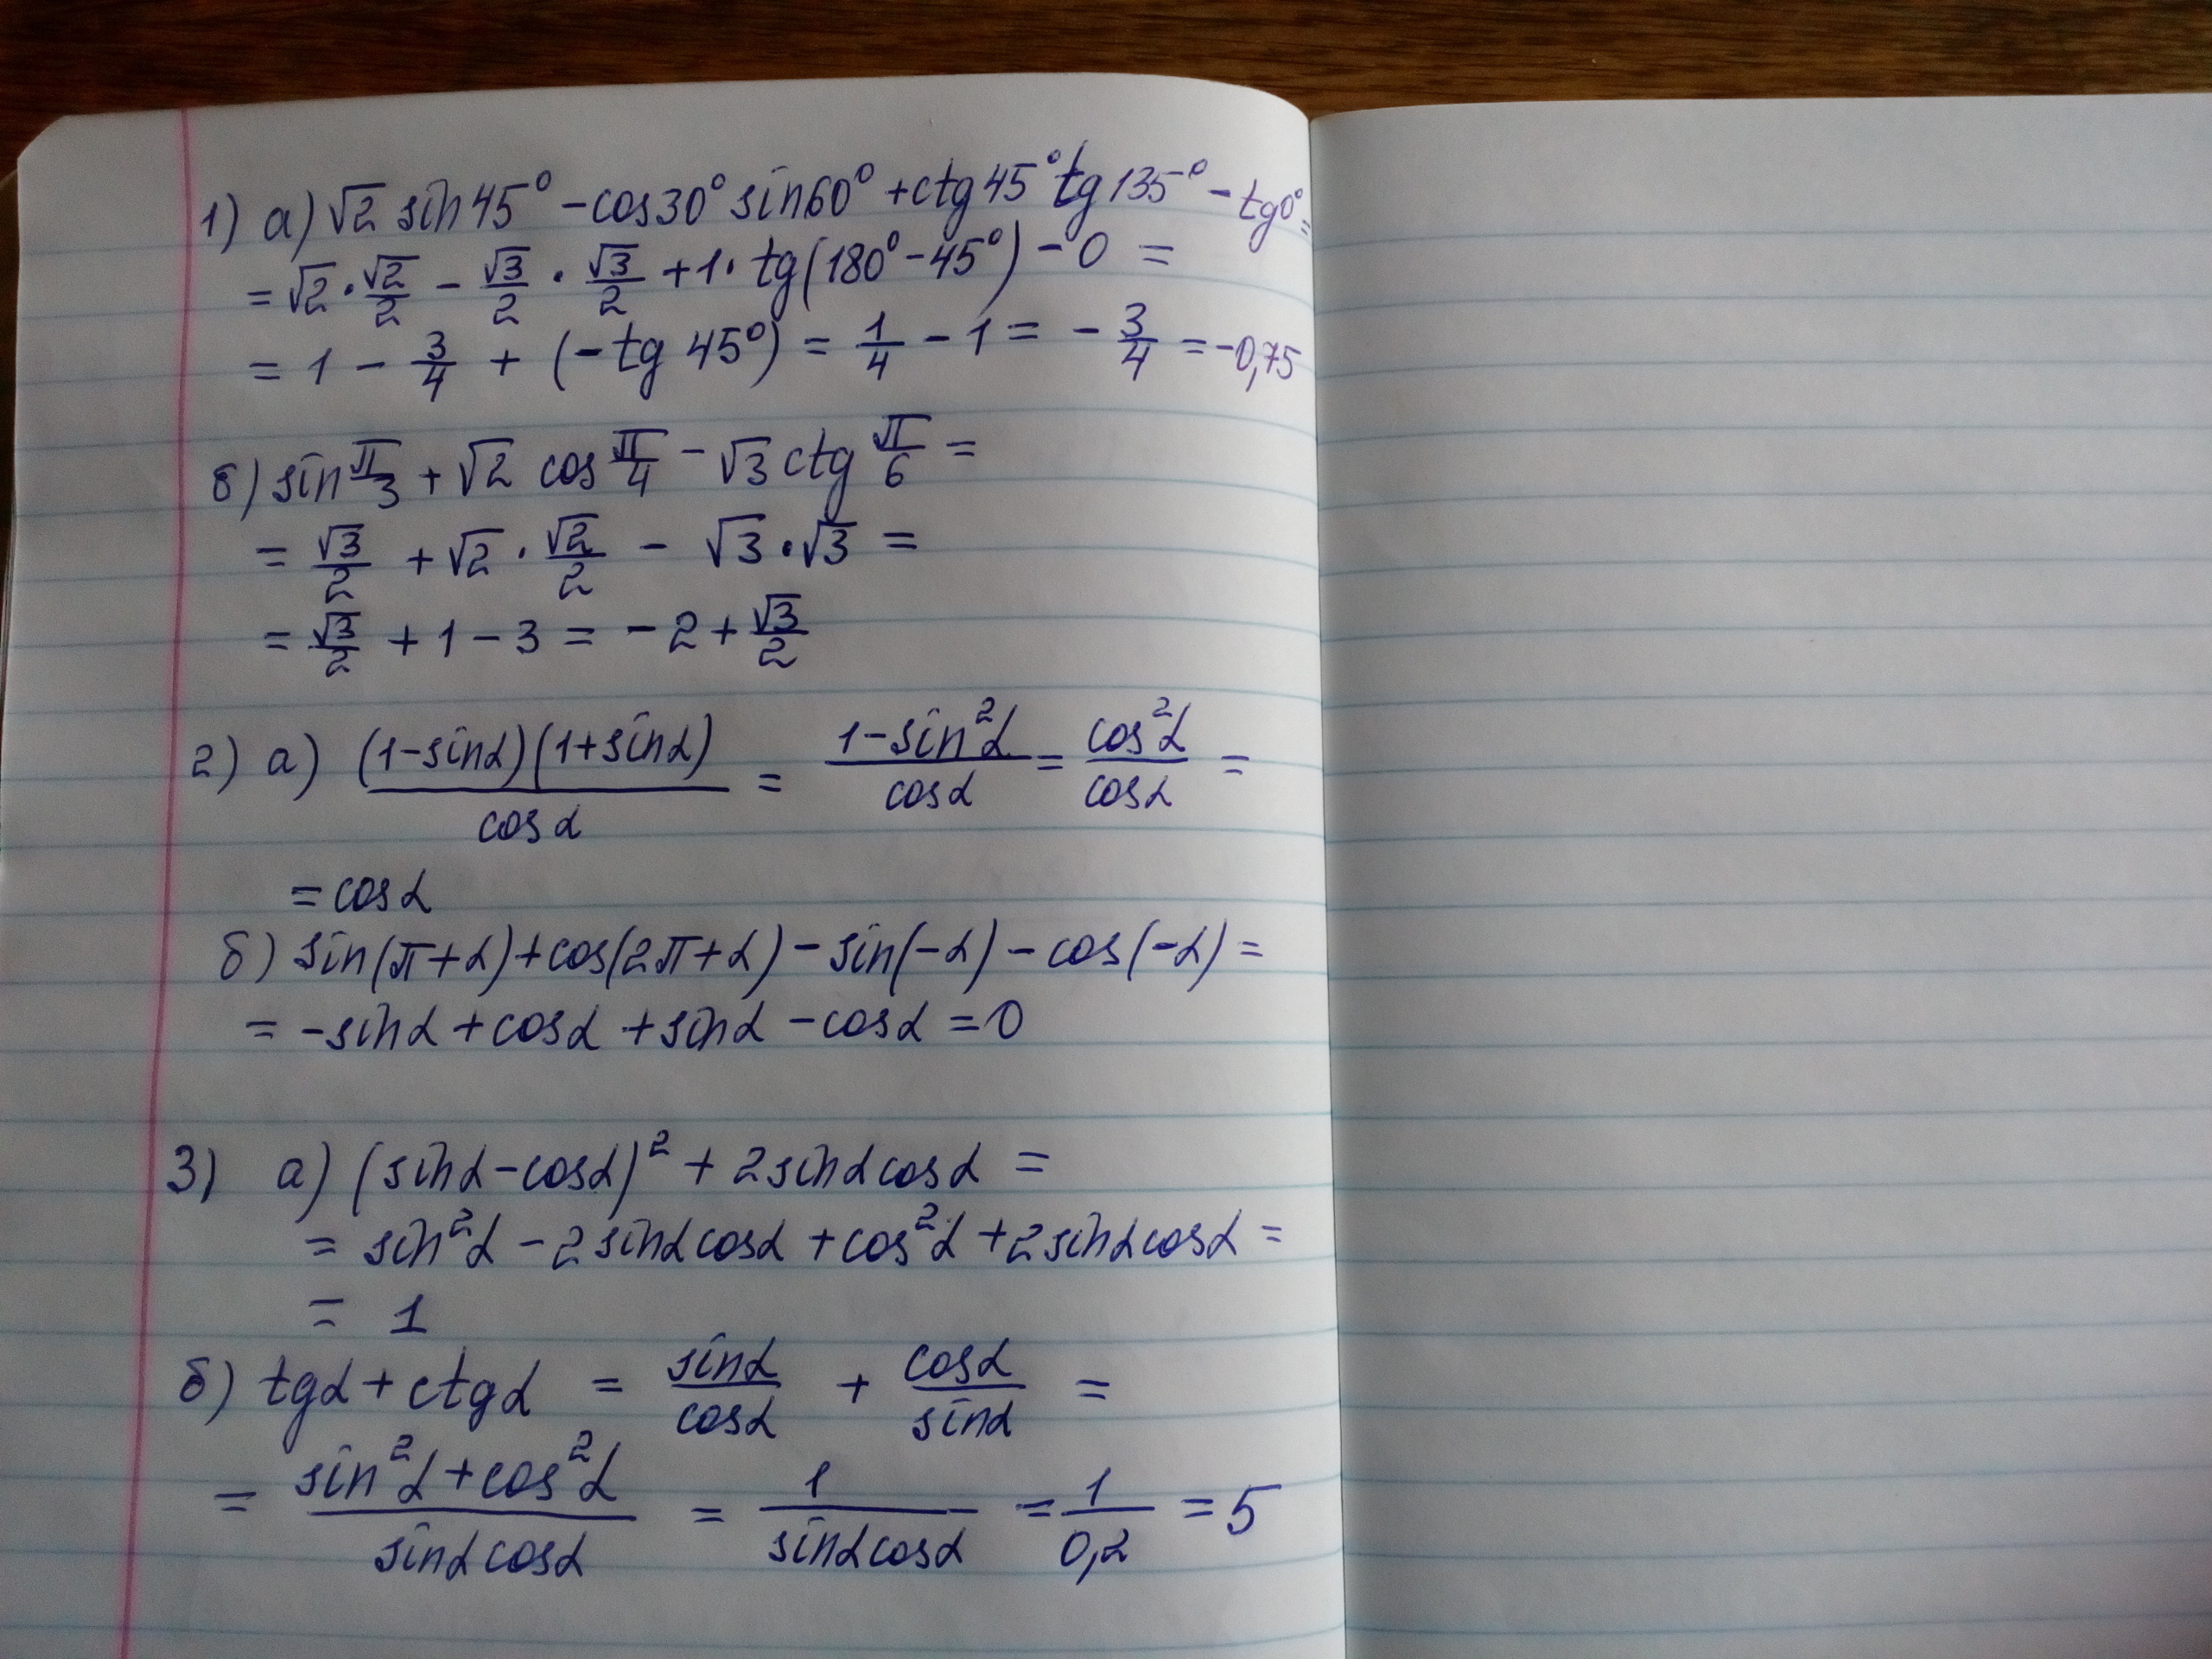 1) а) √2 sin45° - cos30° sin60° + ctg45° tg135° - tg0° =
= √2 · √2/2 - √3/2 · √3/2 + 1 · tg(180° - 45°) - 0 =
= 1 - 3/4 + (-tg 45°) = 1/4 - 1 = - 3/4 = -0,75
б) sin π/3 + √2 cos π/4 - √3 ctg π/6 =
= √3/2 + √2 · √2/2 - √3 · √3 =
= √3/2 + 1 - 3 = - 2 + √3/2
2) а) (1-sinα)(1+sinα)/cosα = 1-sin²α/cosα = cos²α/cosα =
= cosα
б) sin(π+α) + cos(2π+α) - sin(-α) - cos(-α) =
= -sinα + cosα + sinα - cosα = 0
3) а) (sinα - cosα)² + 2sinαcosα =
= sin²α - 2sinαcosα + cos²α + 2sinαcosα =
= 1
б) tgα + ctgα = sinα/cosα + cosα/sinα =
= sin²α + cos²α/sinαcosα = 1/sinαcosα = 1/0,2 = 5